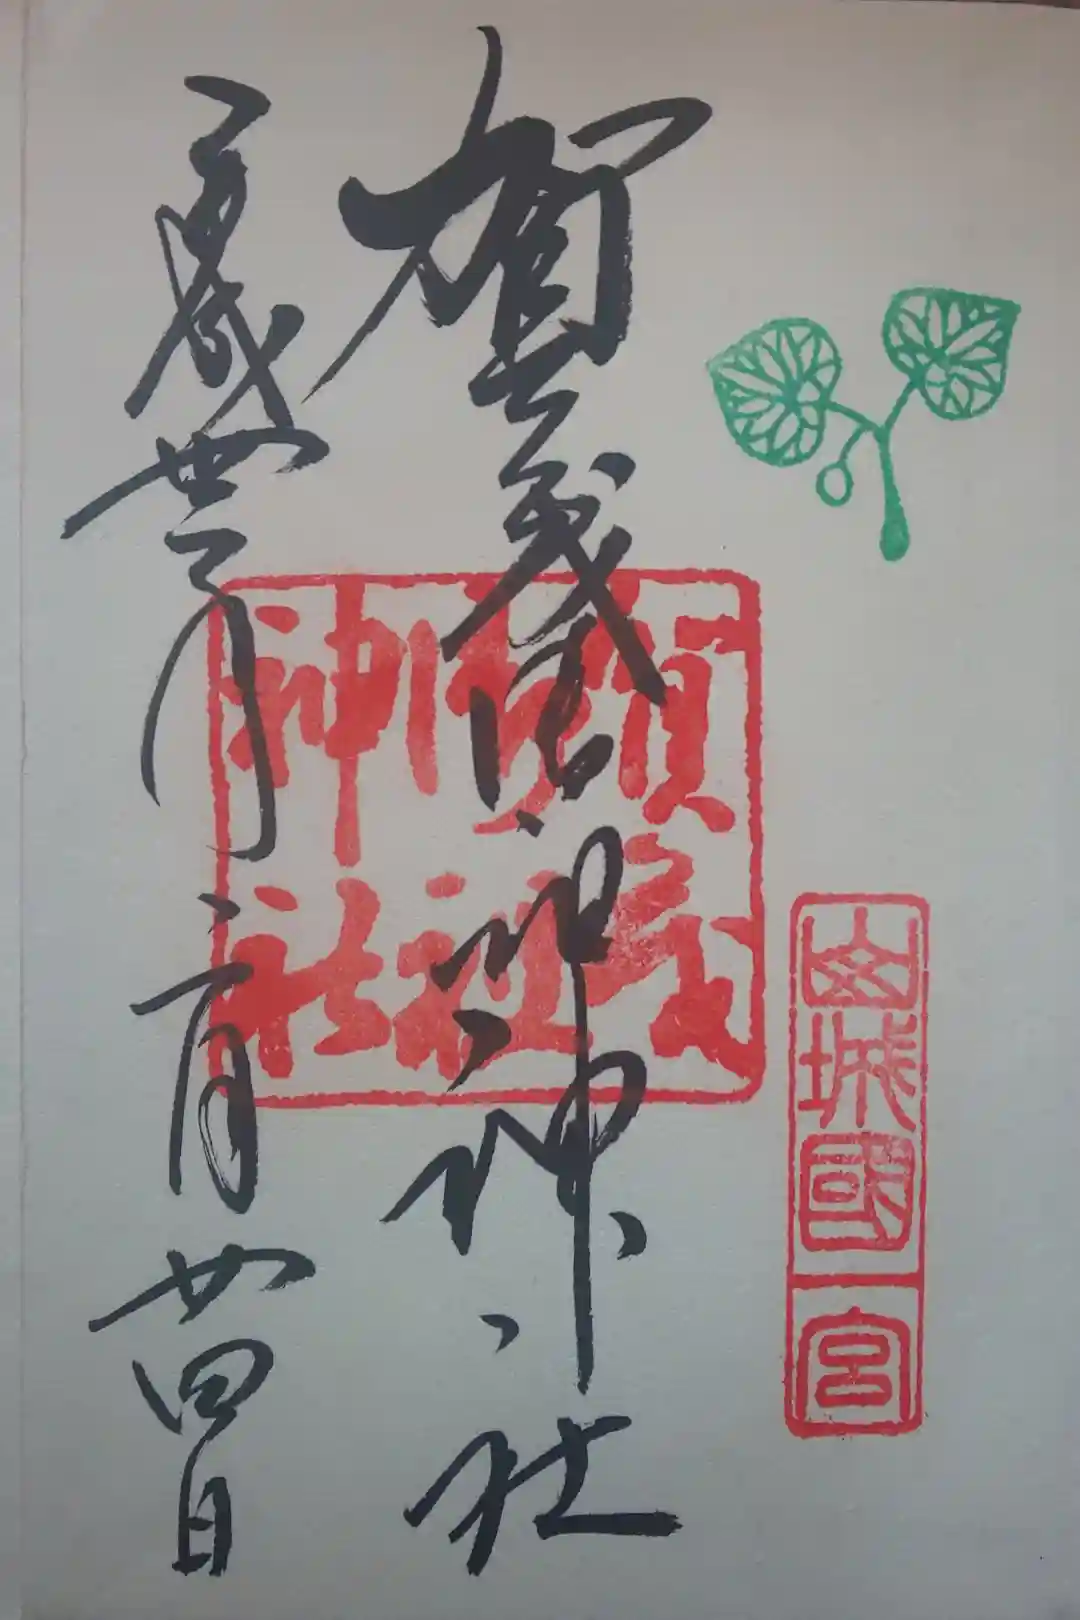 山城國一宮
賀茂御祖神社
賀茂御祖神社
平成丗年二月廿四日